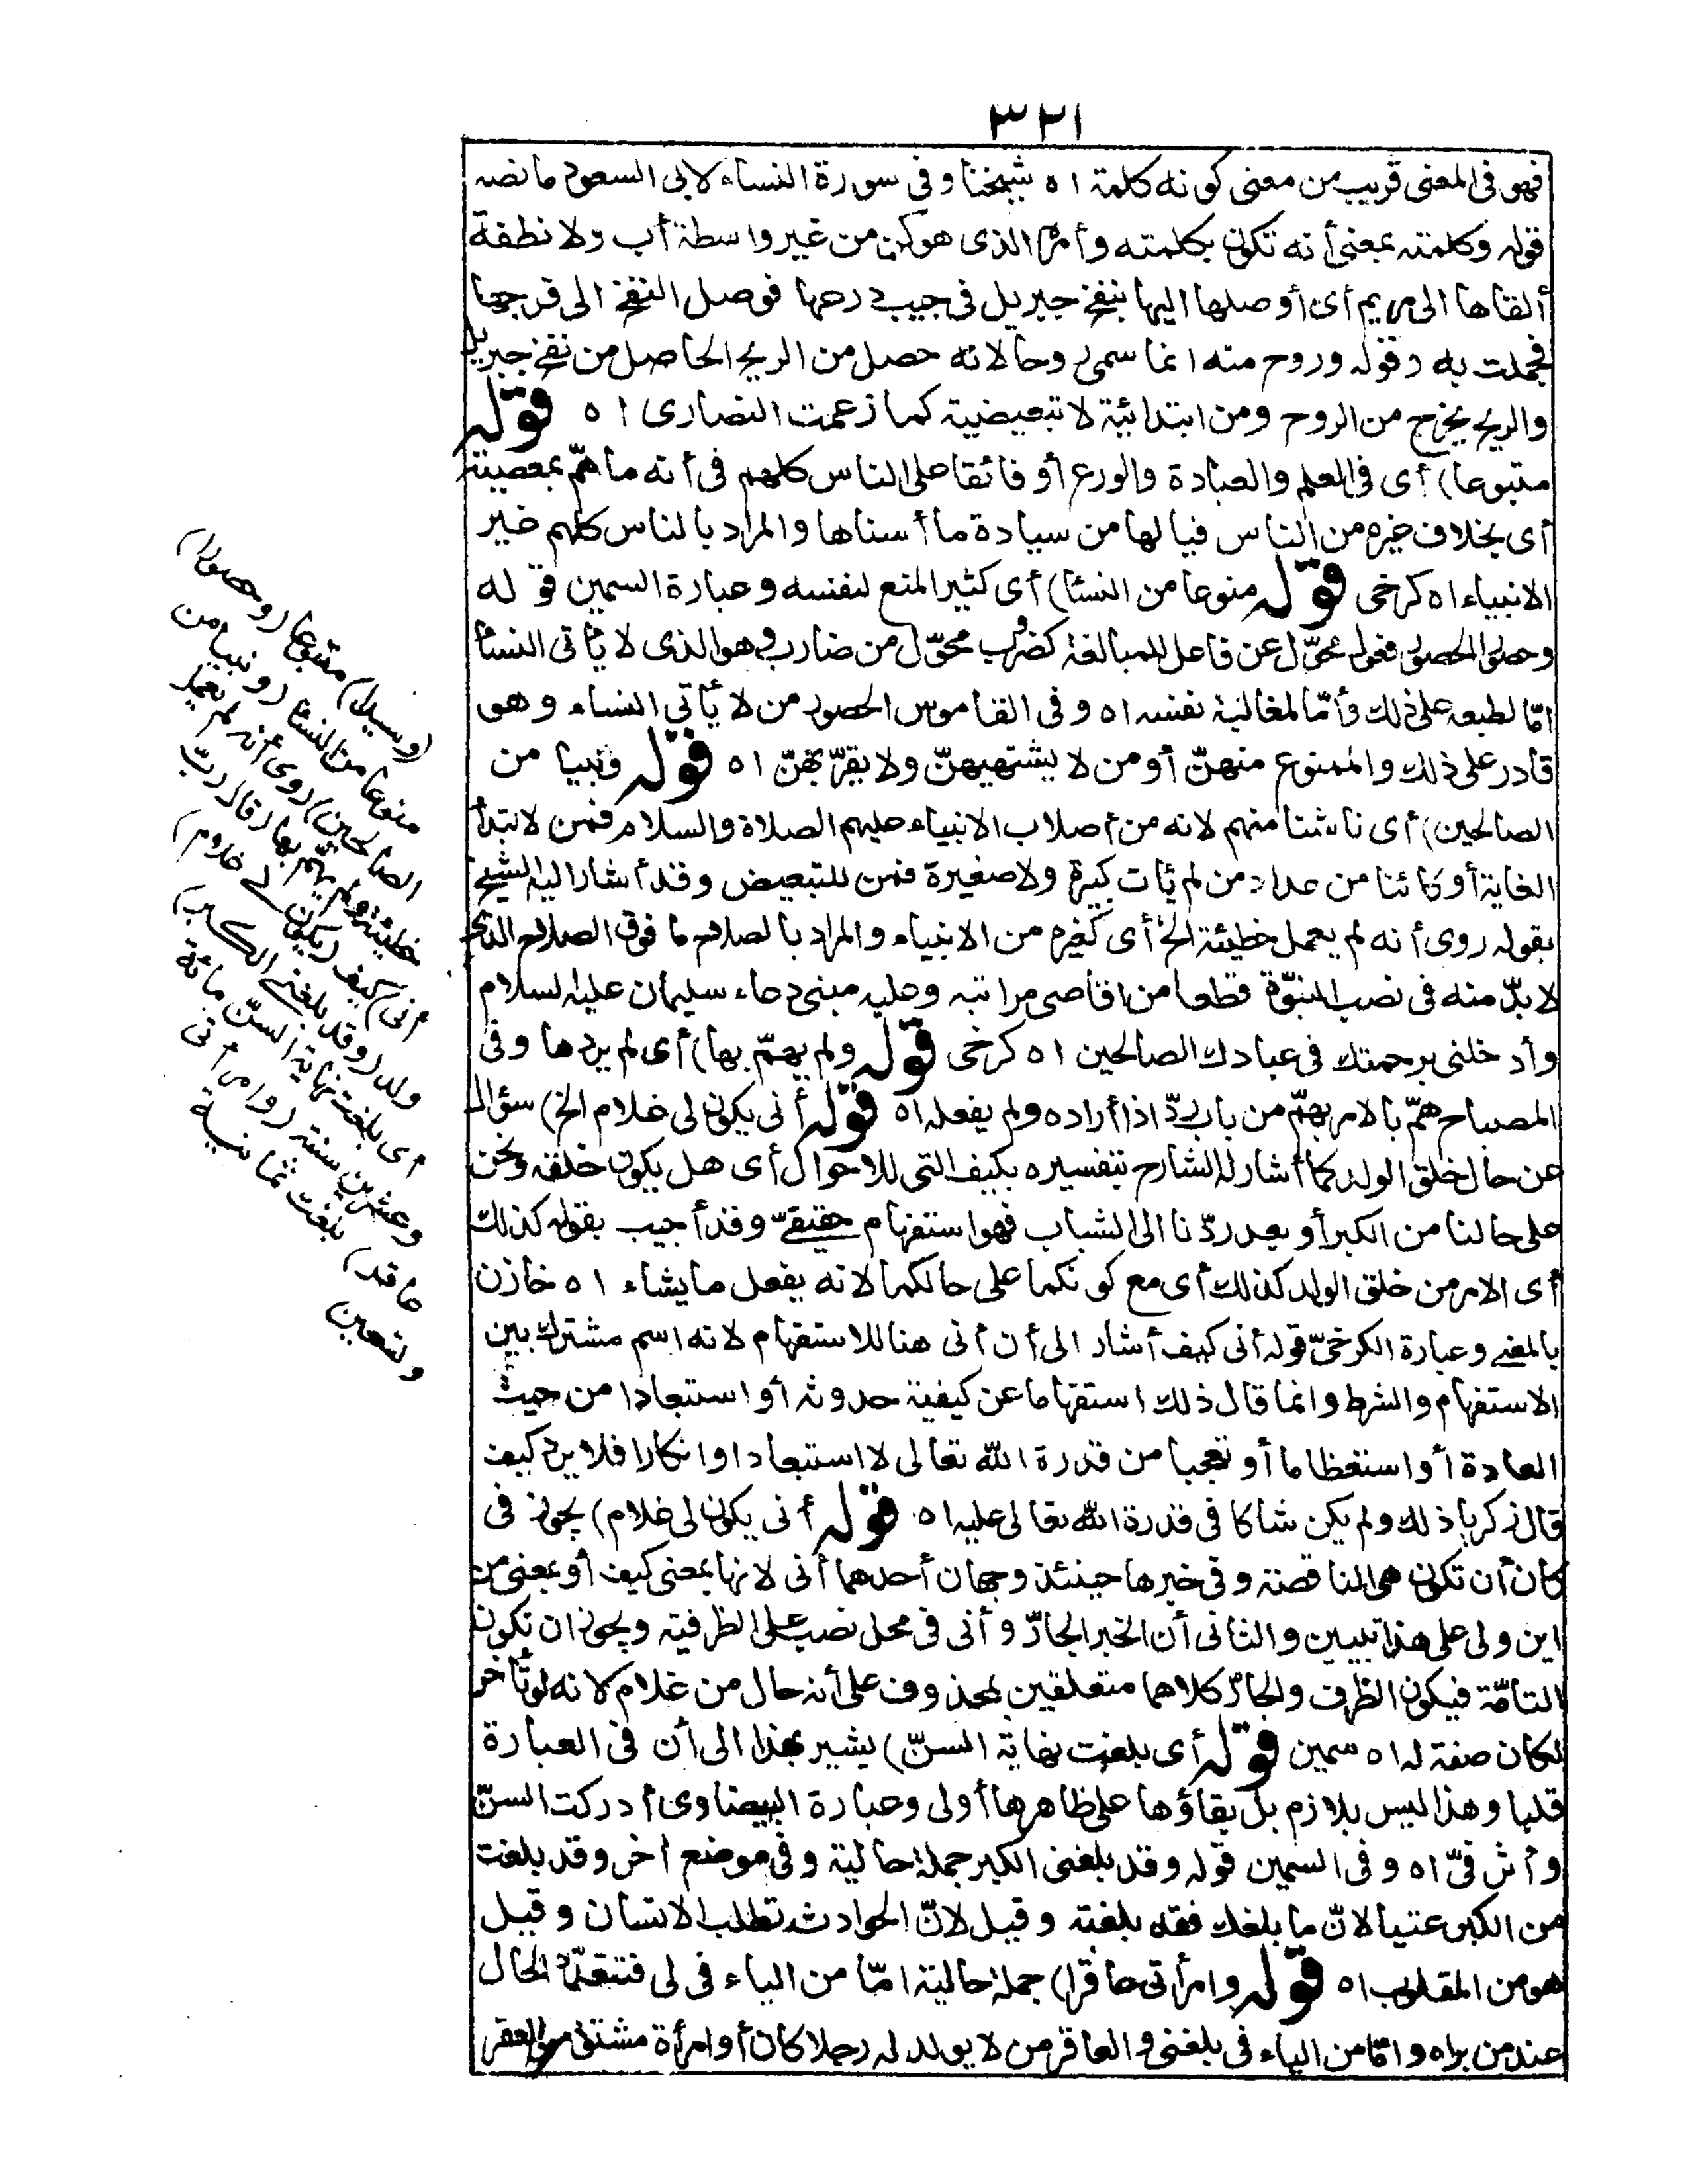 ٣٢١
فهو في المعنى قريب من معنى كونه كلمة اه شيخنا وفى سورة النساء لابى السعود ما نصه
قوله وكلمته بمعنى أنه تكون بكلمته وأمره الذى هو كن من غير واسطة أب ولا نطفة
ألقاها الى مريم أى أوصلها اليها بنفخ جبريل فى جيب درعها فوصل النفخ الى فرجها
فحملت به وقوله وروح منه انما سمى روحا لانه حصل من الريح الحاصل من نفخ جبريل
والريح يخرج من الروح ومن ابتدائية لا تبعيضية كما زعمت النصارى اه قوله
متبوعا) أى فى العلم والعبادة والورع أو فائقا على الناس كلهم فى أنه ما همّ بمعصية
أى بخلاف غيره من الناس فيا لها من سيادة ما أسناها والمراد بالناس كلهم غير
الانبياء اه كرخى قوله منوعا من النساء) أى كثير المنع لنفسه وعبارة السمين قوله
وحصورا الحصور فعول محوّل عن فاعل للمبالغة كضروب محوّل من ضارب وهو الذى لا يأتى النساء
امّا لطبعه على ذلك وأمّا لمغالبة نفسه اه وفى القاموس الحصور من لا يأتى النساء وهو
قادر على ذلك والممنوع منهنّ أو من لا يشتهيهنّ ولا يقربهنّ اه قوله ونبيا من
الصالحين) أى ناشئا منهم لانه من أصلاب الانبياء عليهم الصلاة والسلام فمن لابتداء
الغاية أو كائنا من عداد من لم يأت كبيرة ولا صغيرة فمن للتبعيض وقد أشار اليه الشيخ
بقوله روى أنه لم يعمل خطيئة الخ أى كغيره من الانبياء والمراد بالصلاح ما فوق الصلاح الذى
لا بدّ منه فى نصب النبوّة قطعا من أقاصى مراتبه وعليه مبنى دعاء سليمان عليه السلام
وأدخلنى برحمتك فى عبادك الصالحين اه كرخى قوله ولم يهمّ بها) أى لم يردها وفى
المصباح همّ بالامر يهمّ من باب ردّ اذا أراده ولم يفعله اه قوله أنى يكون لى غلام الخ) سؤال
عن حال خلق الولد كما أشار له الشارح بتفسيره بكيف التى للاحوال أى هل يكون خلقه ونحن
على حالنا من الكبر أو بعد ردّنا الى الشباب فهو استفهام حقيقىّ وقد أجيب بقوله كذلك
أى الامر من خلق الولد كذلك أى مع كونكما على حالكما لانه يفعل ما يشاء اه خازن
بالمعنى وعبارة الكرخىّ قوله أنى كيف أشار الى أن أنى هنا للاستفهام لانه اسم مشترك بين
الاستفهام والشرط وانما قال ذلك استفهاما عن كيفية حدوثه أو استبعادا من حيث
العادة أو استعظاما أو تعجبا من قدرة الله تعالى لا استبعادا وانكارا فلا يرد كيف
قال زكريا ذلك ولم يكن شاكا فى قدرة الله تعالى عليه اه قوله أنى يكون لى غلام) يجوز فى
كان أن تكون هى الناقصة وفى خبرها حينئذ وجهان أحدهما أنى لانها بمعنى كيف أو بمعنى من
اين ولى على هذا تبيين والثانى أن الخبر الجارّ وأنى فى محل نصب على الظرفية ويجوز ان تكون
التامّة فيكون الظرف والجارّ كلاهما متعلقين بمحذوف على أنه حال من غلام لانه لو تأخر
لكان صفة له اه سمين قوله أى بلغت نهاية السنّ) يشير بهذا الى أن فى العبارة
قلبا وهذا ليس بلازم بل بقاؤها على ظاهرها أولى وعبارة البيضاوى أدركت السنّ
وأثر فىّ اه وفى السمين قوله وقد بلغنى الكبر جملة حالية وفى موضع آخر وقد بلغت
من الكبر عتيا لانّ ما بلغك فقد بلغته وقيل لانّ الحوادث تطلب الانسان وقيل
هو من المقلوب اه قوله وامرأتى عاقرا) جملة حالية امّا من الياء فى لى فتتعدّد الحال
عند من يراه وامّا من الياء فى بلغنى والعاقر من لا يولد له رجلا كان أو امرأة مشتق من العقر
(وسيدا) متبوعا (وحصورا)
منوعا من النساء (ونبيا من
الصالحين) روى أنه لم يعمل
خطيئة ولم يهمّ بها (قال ربّ
أنى) كيف (يكون لى غلام)
ولد (وقد بلغنى الكبر)
أى بلغت نهاية السنّ مائة
وعشرين سنة (وامرأتى
عاقر) بلغت ثمانية
وتسعين